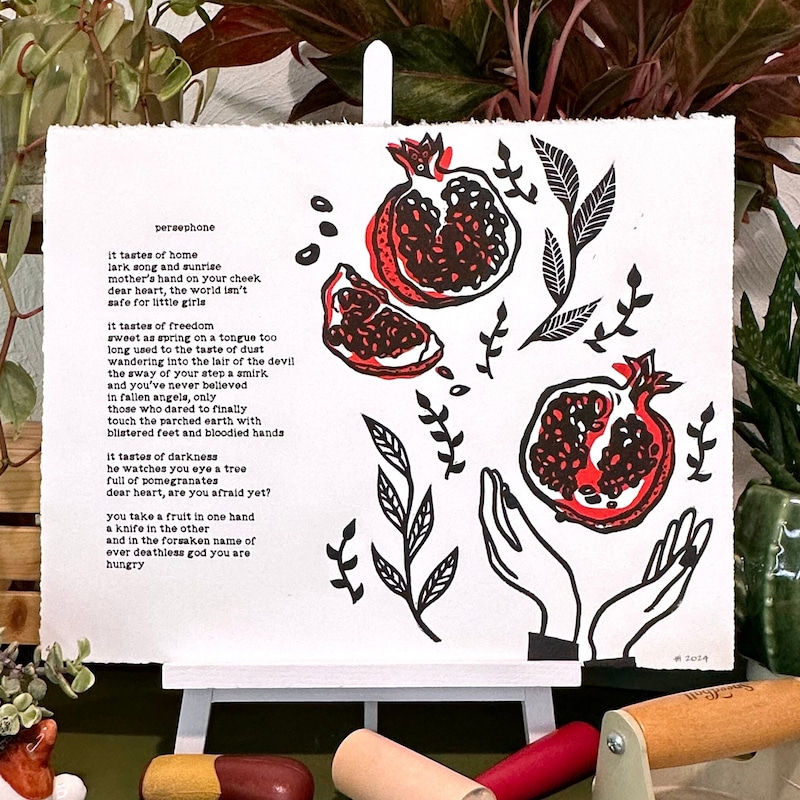 persephone
it tastes of home
lark song and sunrise
mother's hand on your cheek
dear heart, the world isn't
safe for little girls
it tastes of freedom
sweet as spring on a tongue too
long used to the taste of dust
wandering into the lair of the devil
the sway of your step a smirk
and you've never believed
in fallen angels, only
those who dared to finally
touch the parched earth with
blistered feet and bloodied hands
it tastes of darkness
he watches you eye a tree
full of pomegranates
dear heart, are you afraid yet?
you take a fruit in one hand
a knife in the other
and in the forsaken name of
ever deathless god you are
hungry
2024
Speedball